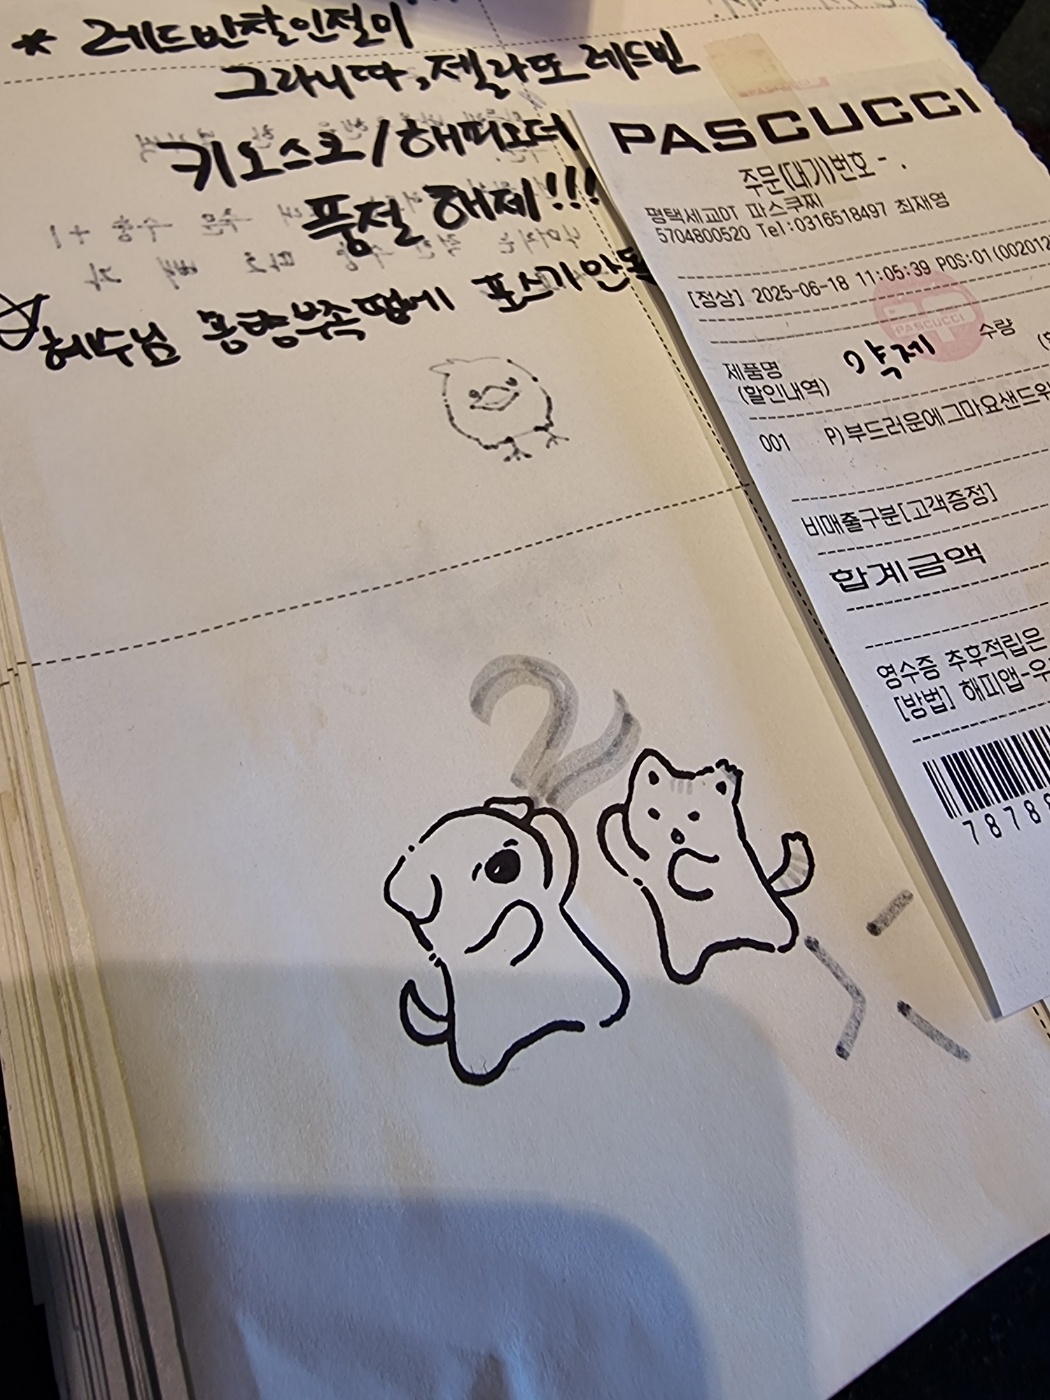 * 레드반찰인절미
그라니따, 젤라또 레드빈
키오스크/해피오더
품절 해제!!!
혜수님 몽향부족땜에 포스기안돼
PASCUCCI
주문(대기)번호 - .
평택세교DT 파스쿠찌
5704800520 Tel:0316518497 최재영
[정상] 2025-06-18 11:05:39 POS:01(002012
PASCUCCI
제품명 수량
약제
(할인내역)
001 P)부드러운에그마요샌드위
비매출구분[고객증정]
합계금액
영수증 추후적립은
[방법] 해피앱-우
7878